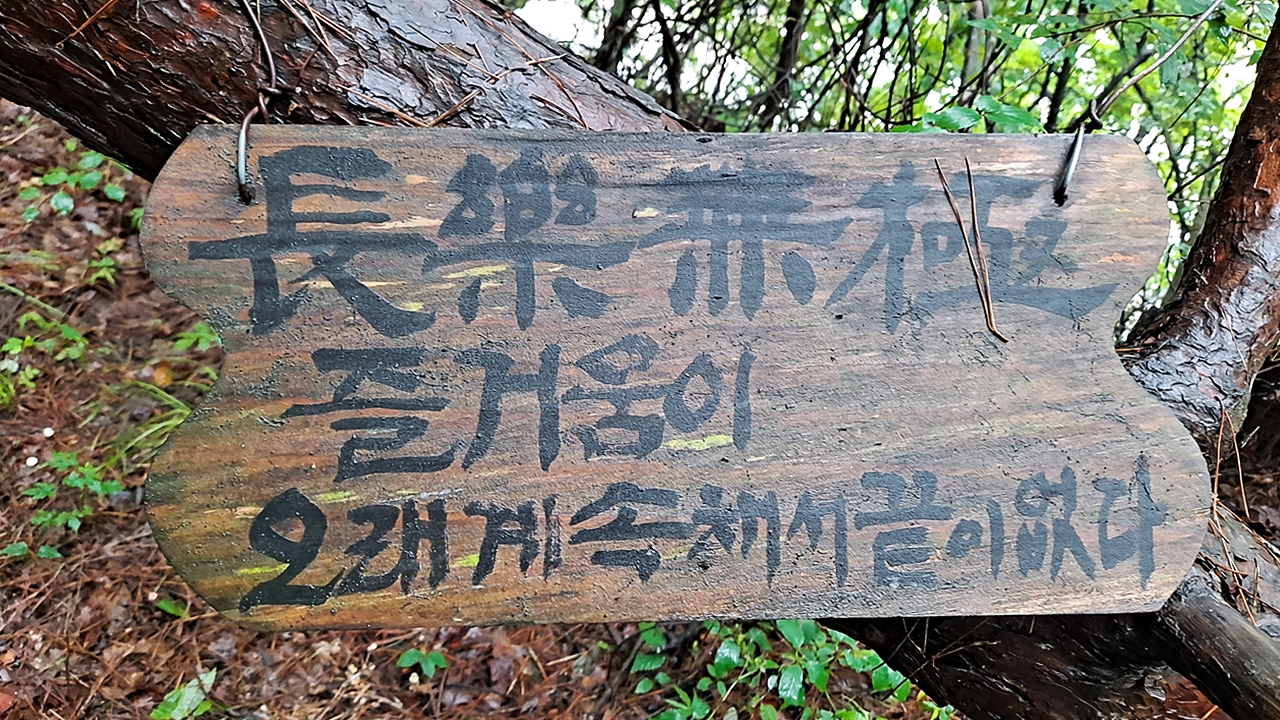 長樂無極
즐거움이
오래계속채서끝이없다